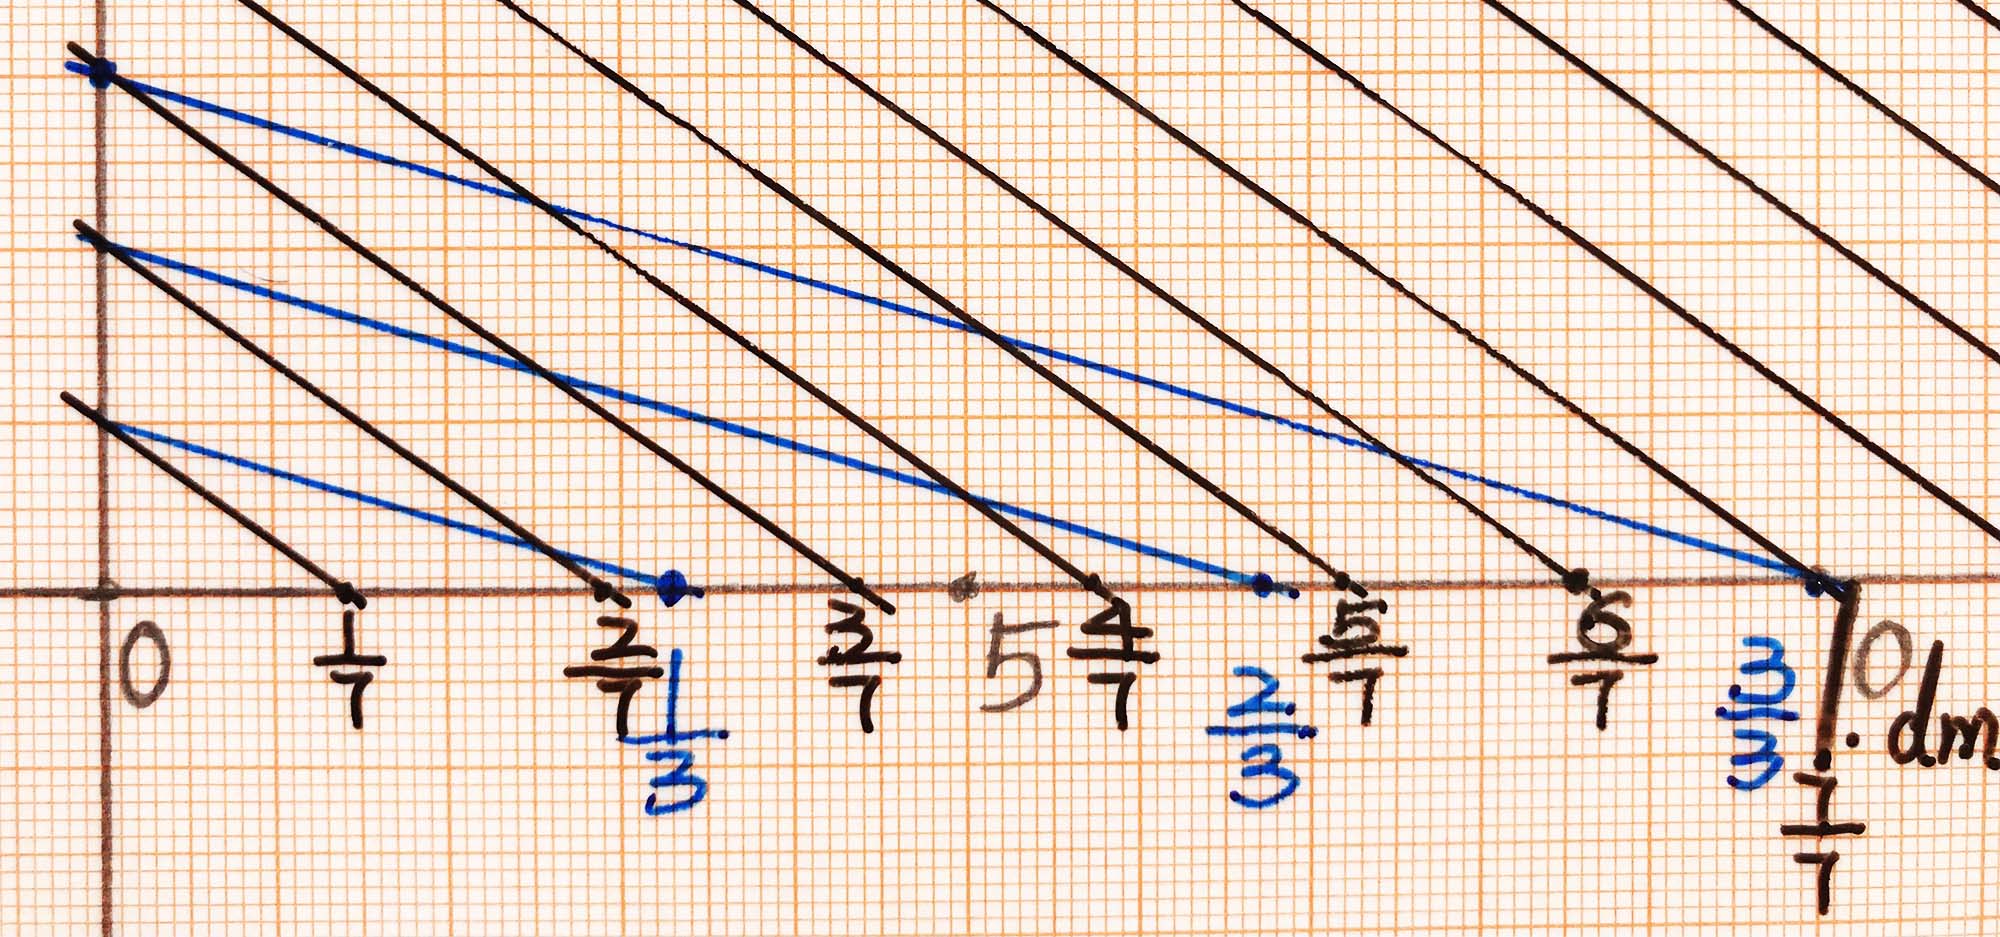 0 1/7 2/7 1/3 3/7 5 4/7 2/3 5/7 6/7 3/3 0 dm
7/7